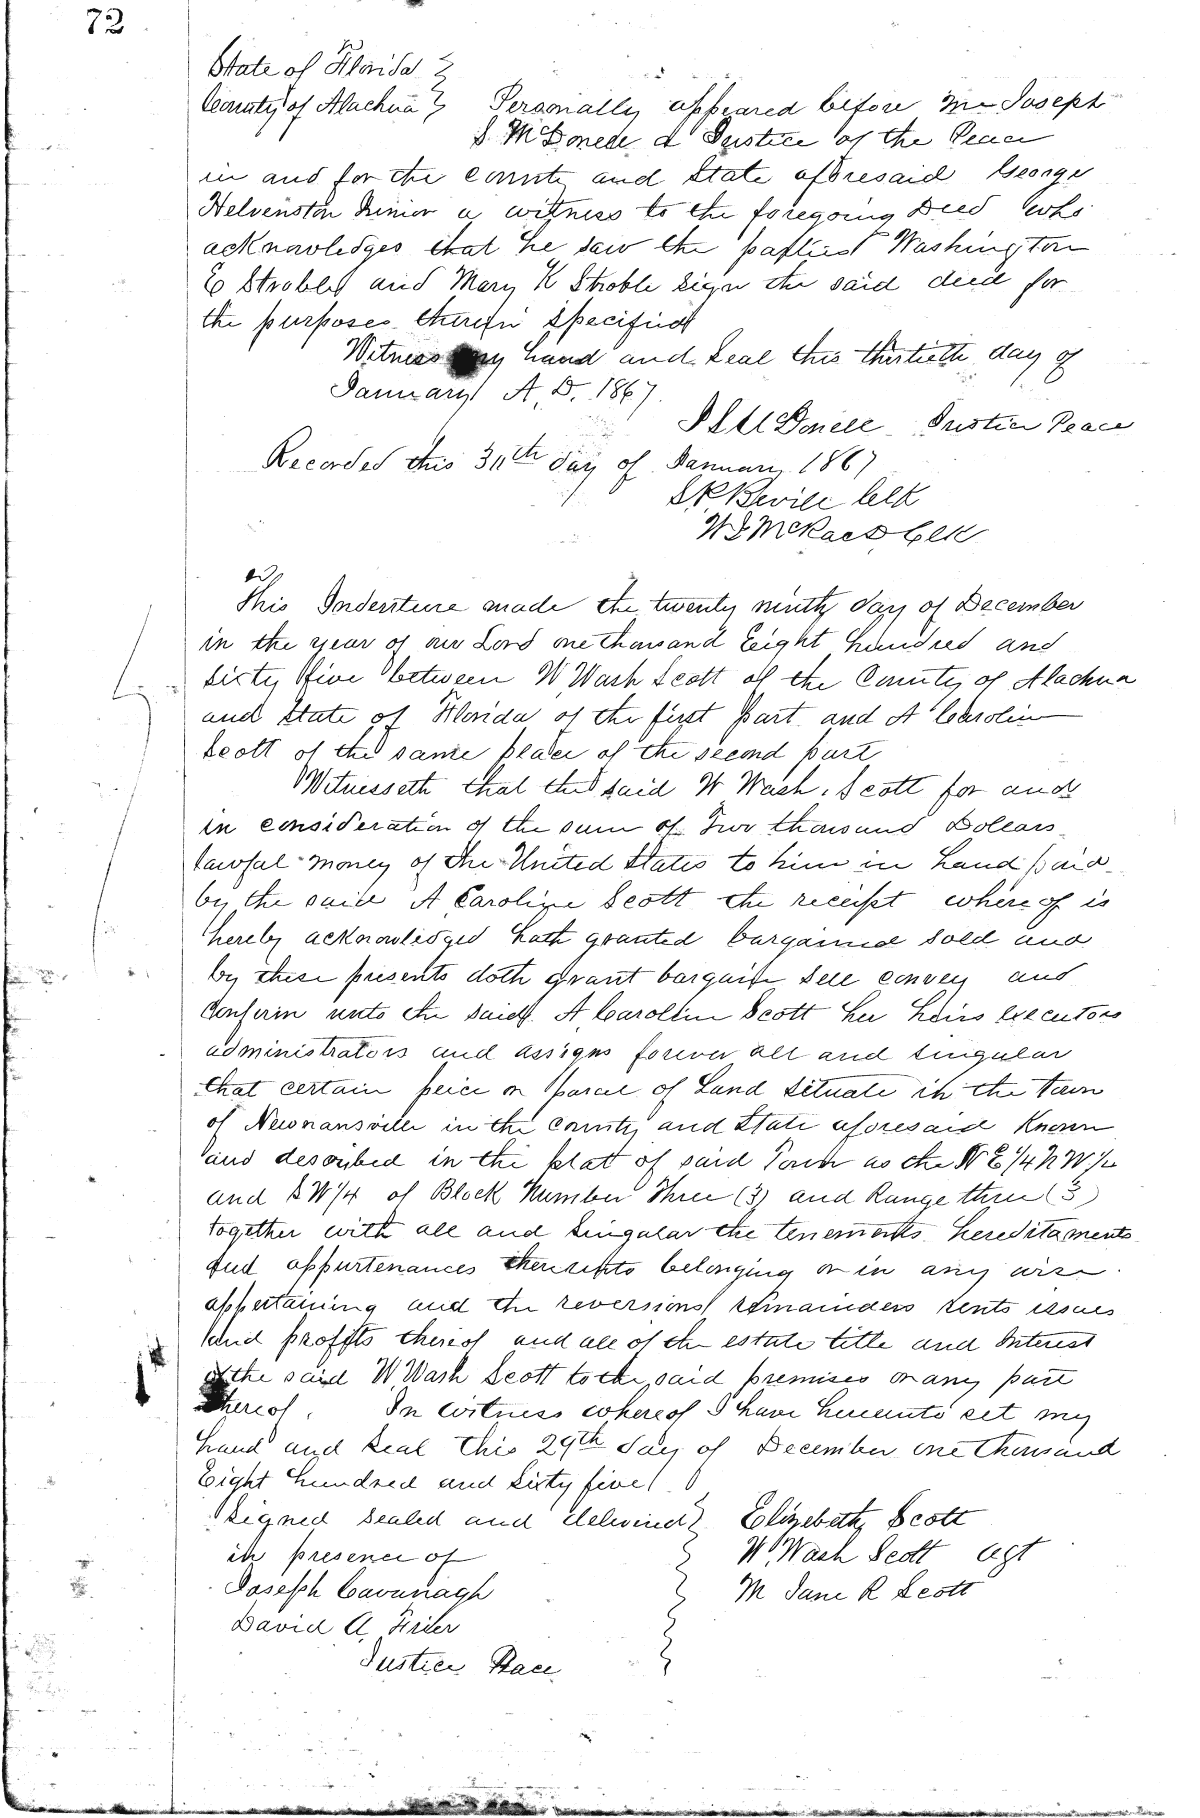 72
State of Florida }
County of Alachua } Personally appeared before me Joseph
S McDonell a Justice of the Peace
in and for the county and State aforesaid George
Helvenston Junior a witness to the foregoing Deed who
acknowledges that he saw the parties Washington
E Stroble and Mary K Stroble sign the said deed for
the purposes therein specified
Witness my hand and seal this thirtieth day of
January A. D. 1867.
J S McDonell Justice Peace
Recorded this 30th day of January 1867
S. R. Bevill Clk
W J McRae D Clk
This Indenture made the twenty ninth day of December
in the year of our Lord one thousand Eight hundred and
sixty five between W Wash Scott of the County of Alachua
and State of Florida of the first part and A Caroline
Scott of the same place of the second part
Witnesseth that the said W Wash. Scott for and
in consideration of the sum of Two thousand Dollars
lawful money of the United States to him in hand paid
by the said A Caroline Scott the receipt where of is
hereby acknowledged hath granted bargained sold and
by these presents doth grant bargain sell convey and
Confirm unto the said A Caroline Scott her heirs executors
administrators and assigns forever all and singular
that certain peice or parcel of Land situate in the town
of Newnansville in the county and State aforesaid Known
and described in the plat of said Town as the N E 1/4 N W 1/4
and S W 1/4 of Block Number Three (3) and Range three (3)
together with all and singular the tenements hereditaments
and appurtenances thereunto belonging or in any wise
appertaining and the reversions remainders rents issues
and proffits thereof and all of the estate title and Interest
of the said W. Wash Scott to the said premises or any part
thereof. In witness whereof I have hereunto set my
hand and seal this 29th day of December one thousand
Eight hundred and Sixty five
Signed sealed and delivered } Elizebeth Scott
in presence of W. Wash Scott agt
Joseph Cavanagh M Jane R Scott
David A. Frier
Justice Peace